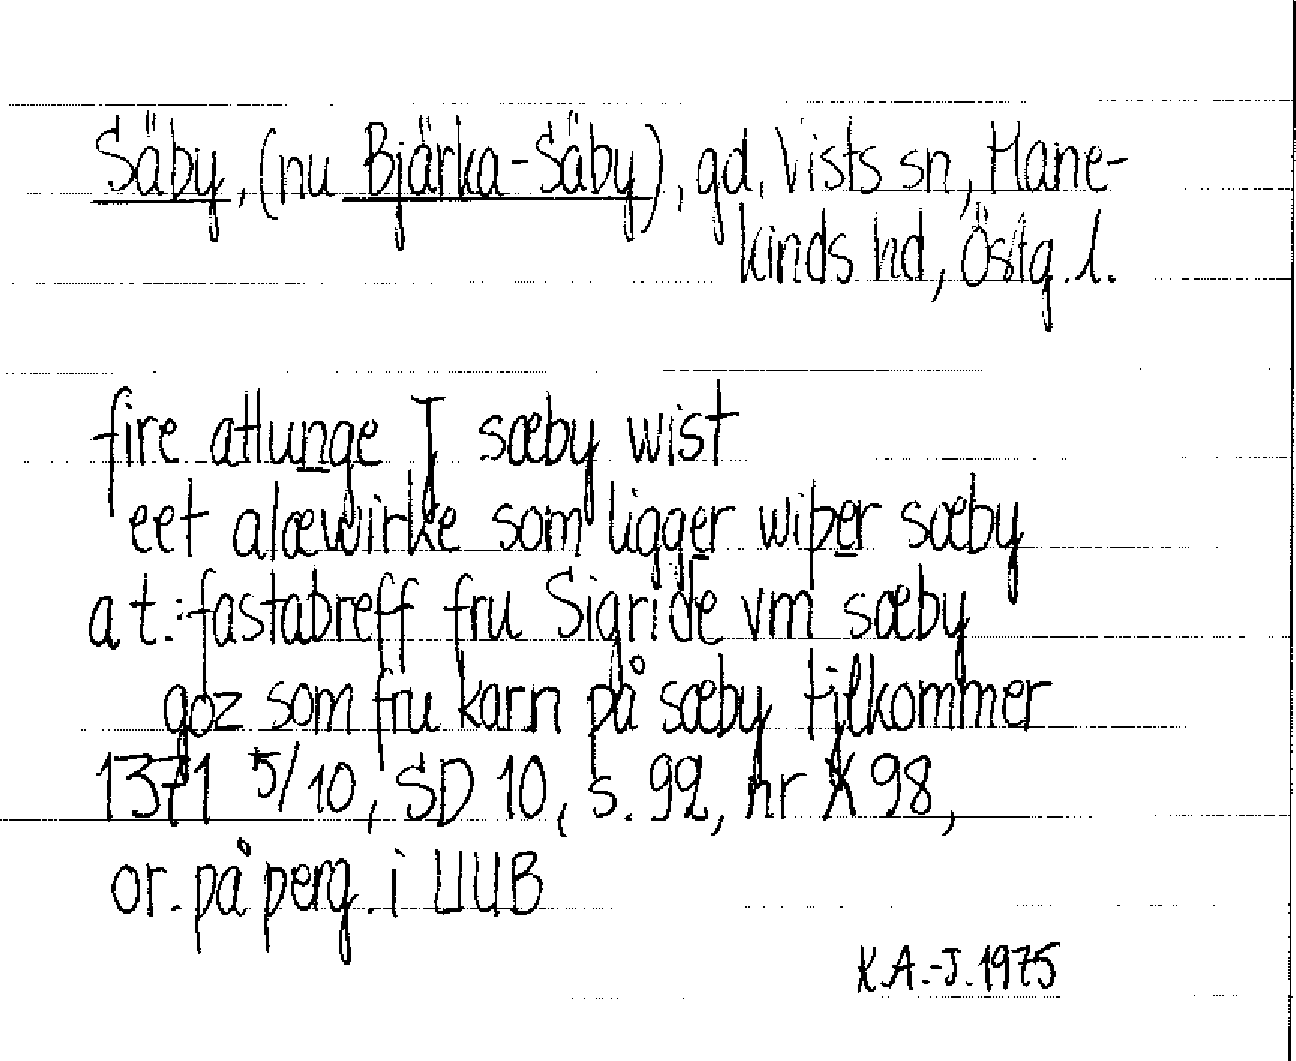 Säby, (nu Bjärka-Säby), gd, Vists sn, Hane-
kinds hd, Östg. l.
fire attunge J sæby wist
eet alæwirke som ligger wiþer sæby
a t.: fastabreff fru Sigride vm sæby
goz som fru karn på sæby tilkommer
1371 5/10, SD 10, s. 92, nr X 98,
or. på perg. i UUB
K.A.-J. 1975